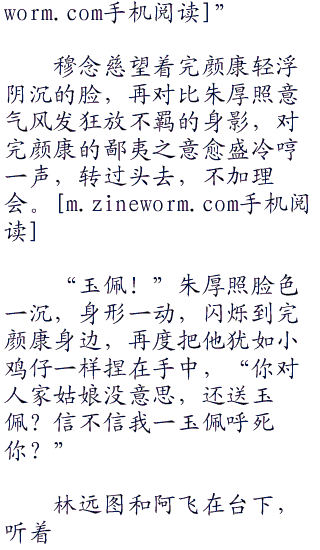 worm.com手机阅读]”
穆念慈望着完颜康轻浮
阴沉的脸，再对比朱厚照意
气风发狂放不羁的身影，对
完颜康的鄙夷之意愈盛冷哼
一声，转过头去，不加理
会。[m.zineworm.com手机阅
读]
“玉佩！”朱厚照脸色
一沉，身形一动，闪烁到完
颜康身边，再度把他犹如小
鸡仔一样捏在手中，“你对
人家姑娘没意思，还送玉
佩？信不信我一玉佩呼死
你？”
林远图和阿飞在台下，
听着